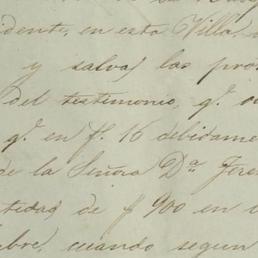 dente, en esta Villa,
y salva, las pro
del testimonio, q.e
q.e en f.s 16 debidame
de la Señora D.a
tidad de $ 900 en
bre, cuando segun